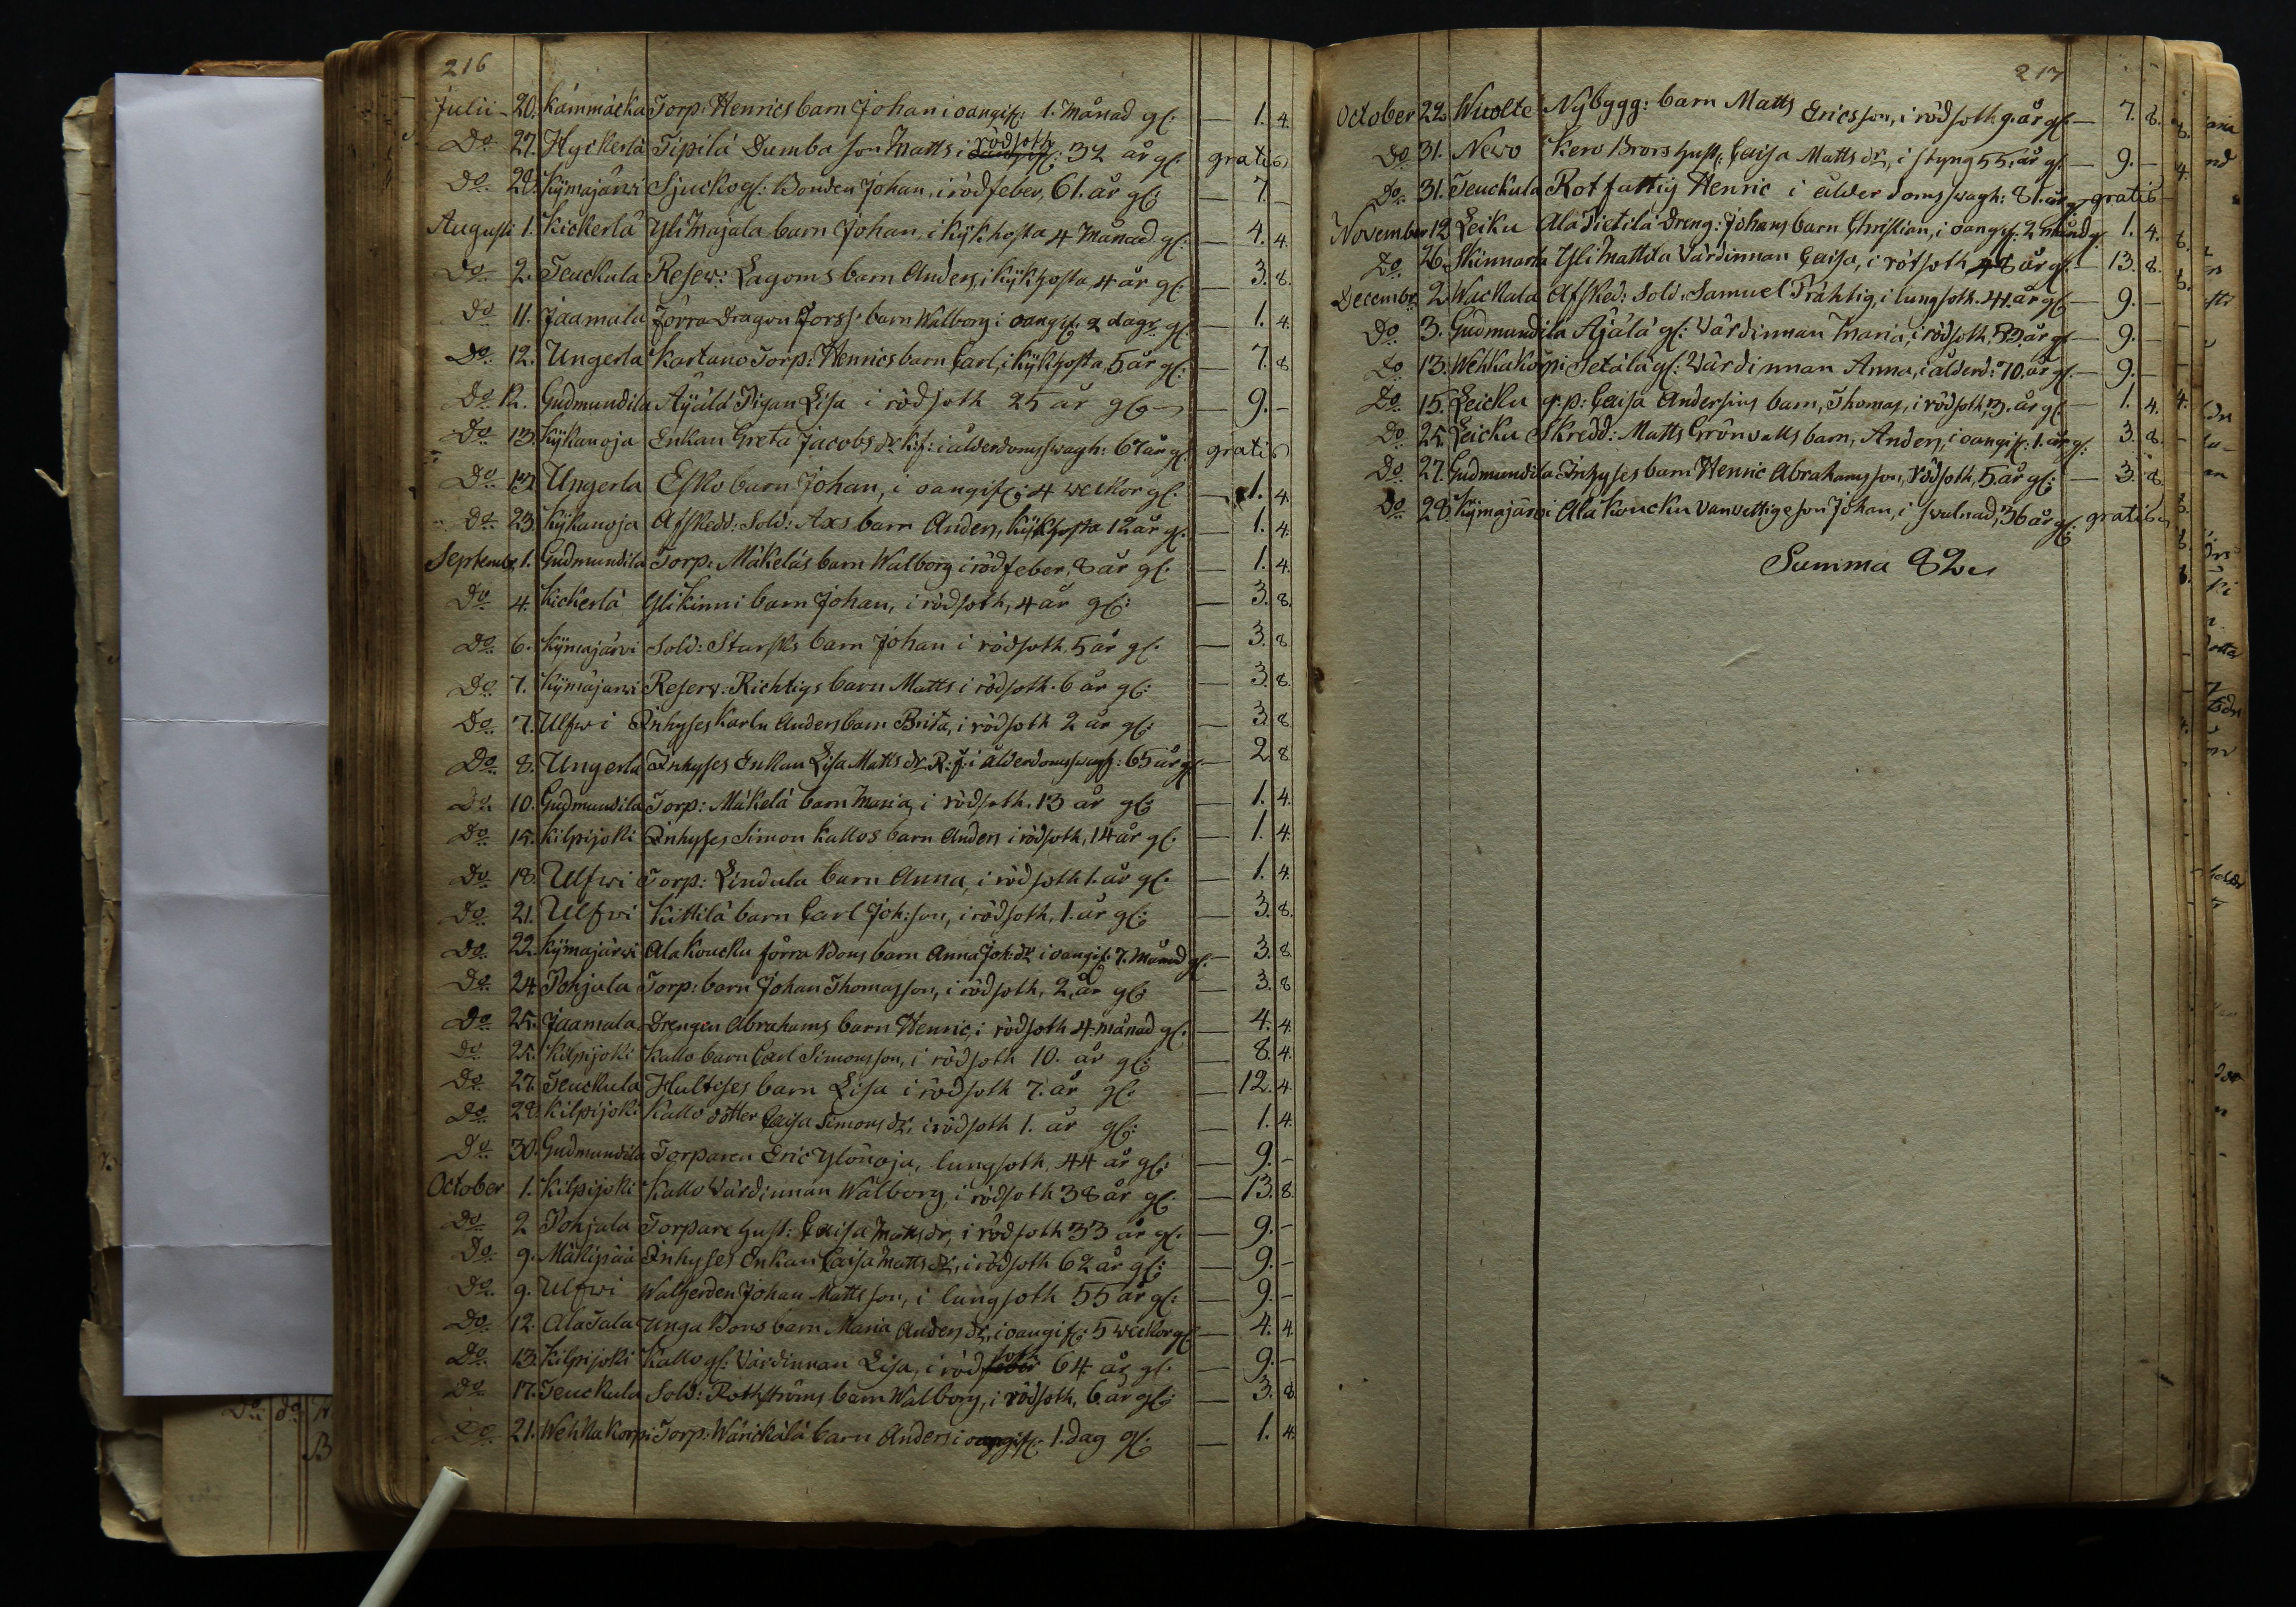 216
Julii - 20. Kämmäckä Torp: Henrics barn Johan i oangifl: 1. Månad gl: — 1. 4.
Do 27. Hyckerlä Tipilä Dumba son Matts i rödsoth 32 år gl: gratis
Do 28. Kÿmajärwi Sjucko gl: Bonden Johan, i rödfeber, 61. år gl: — 7. –
Augusti 1. Kickerlä Yli Majala barn Johan, i Kÿkhosta 4 Månad gl: — 4. 4.
Do 2. Teuckula Reserv: Lagoms barn Anders, i Kÿkhosta, 4 år gl: — 3. 8.
Do 11. Jaamala förra Dragon Forss' barn Walborg i oangifl: 2 dagr gl: — 1. 4.
Do 12. Ungerla Kartano Torp: Henrics barn Carl, i Kÿkhosta, 5 år gl: — 7. 8
Do 12. Gudmundila Äÿälä Pigan Lisa i rödsoth 25 år gl: — 9. –
Do 13. Kÿkänoja Enkan Greta Jacobs dr i ålderdomsswagh: 67 år gl gratis
Do 13. Ungerla Esko barn Johan, i oangifl: 4 weckor gl: — 1. 4.
Do 23. Kÿkanoja Afskedd: Sold: Axs barn Anders, Kÿkhosta 12 år gl: — 1. 4.
Septembr 1. Gudmundila Torp: Mäkeläs barn Walborg i rödfeber, 8 år gl: — 1. 4.
Do 4. Kickerlä Ylikinni barn Johan, i rödsoth, 4 år gl: — 3. 8.
Do 6. Kÿmajärvi Sold: Starsks barn Johan i rödsoth, 5 år gl: — 3. 8
Do 7. Kÿmäjärwi Reserv: Richtigs barn Matts i rödsoth. 6 år gl: — 3. 8.
Do 7. Ulfwi Inhyses Karln Anders barn Brita, i rödsoth 2 år gl: — 3. 8.
Do 8. Ungerla Inhyses Enkan Lisa Matts dr i ålderdomsswagh: 65 år gl — 2. 8
Do 10. Gudmundila Torp: Mäkelä barn Maria, i rödsoth. 13 år gl: — 1. 4.
Do 15. Kilpijoki Inhyses Simon Kallos barn Anders i rödsoth, 14 år gl: — 1. 4.
Do 18. Ulfwi Torp: Lindula barn Anna, i rödsoth 1. år gl: — 1. 4.
Do 21. Ulfwi Kittilä barn Carl Joh:son, i rödsoth, 1. år gl: — 3. 8.
Do 22. Kÿmajärwi Ala Koucku förra Bons barn Anna Joh: dr i oangif: 7. Månad gl: — 3. 8.
Do 24. Pohjala Torp: barn Johan Thomasson, i rödsoth, 2 år gl: — 3. 8
Do 25. Jaamala Drengen Abrahams barn Henric, i rödsoth 4 månad gl: — 4. 4.
Do 25. Kilpijoki Kallo barn Carl Simonsson, i rödsoth 10. år gl: — 8. 4.
Do 27. Teuckula Hultises barn Lisa i rödsoth 7. år gl: — 12. 4
Do 28. Kilpijoki Kallo dotter Caisa Simons dr, i rödsoth 1. år gl: — 1. 4.
Do 30. Gudmundila Torparen Eric Ylönoja, lungsoth, 44 år gl: — 9. –
October 1. Kilpijoki Kallo Värdinnan Walborg, i rödsoth 38 år gl: — 13. 8.
Do 2 Pohjala Torpare hust: Caisa Matts dr, i rödsoth 33 år gl: — 9. –
Do 9. Mäkipää Inhyses Enkan Caisa Matts dr, i rödsoth 62 år gl: — 9. –
Do 9. Ulfwi Johan Mattsson, i lungsoth 55 år gl: — 9. –
Do 12. AlaTala Unga Bons barn Maria Anders dr, i oangifl: 5 weckor gl — 4. 4.
Do 13. Kilpijoki Kallo gl: Värdinnan Lisa, i rödsoth 64 år gl: — 9. –
Do 17. Teuckula Sold: Rothströms barn Walborg, i rödsoth, 6. år gl: — 3. 8
Do 21. Wehkakorpi Torp: Wärickälä barn Anders i oangifl: 1. dag gl: — 1. 4.
217
October 22. Wuolte Nybygg: barn Matts Ericsson, i rödsoth 9. år gl — 7. 8.
Do 31. Newo Kero Brors hust: Caisa Matts dr, i styng 55. år gl: — 9. –
Do 31. Teuckula Rotfattig Henric i ålderdomsswagh: 81. år gl gratis
November 12 Leiku Ala Pietilä Dreng: Johans barn Christian, i oangif: 2 månd gl 1. 4.
Do 26. Skinnarla Yli Mattila Värdinnan Caisa, i rötsoth 48 år gl: — 13. 8.
Decembr. 2. Wackala Afsked: Sold: Samuel Prähtig, i lungsoth. 41. år gl: — 9. –
Do 3. Gudmundila Äjälä gl: Värdinnan Maria, i rödsoth, 53. år gl — 9. –
Do 13. Wehkakorpi Setälä gl: Wärdinnan Anna, i ålderd: 70. år gl: — 9. –
Do 15. Leicku q: p: Caisa barn, Thomas, i rödsoth, 3. år gl: — 1. 4.
Do 25. Leicku Skredd: Matts Grönvalls barn, Anders, i oangifl: 1. år gl: 3. 8.
Do 27. Gudmundila Inhyses barn Henric Abrahamsson, rödsoth, 5. år gl: — 3. 8.
Do 28. Kymajärvi Ala Koucku vanvettige son Johan, i swulnad, 36 år gl: gratis
Summa 82